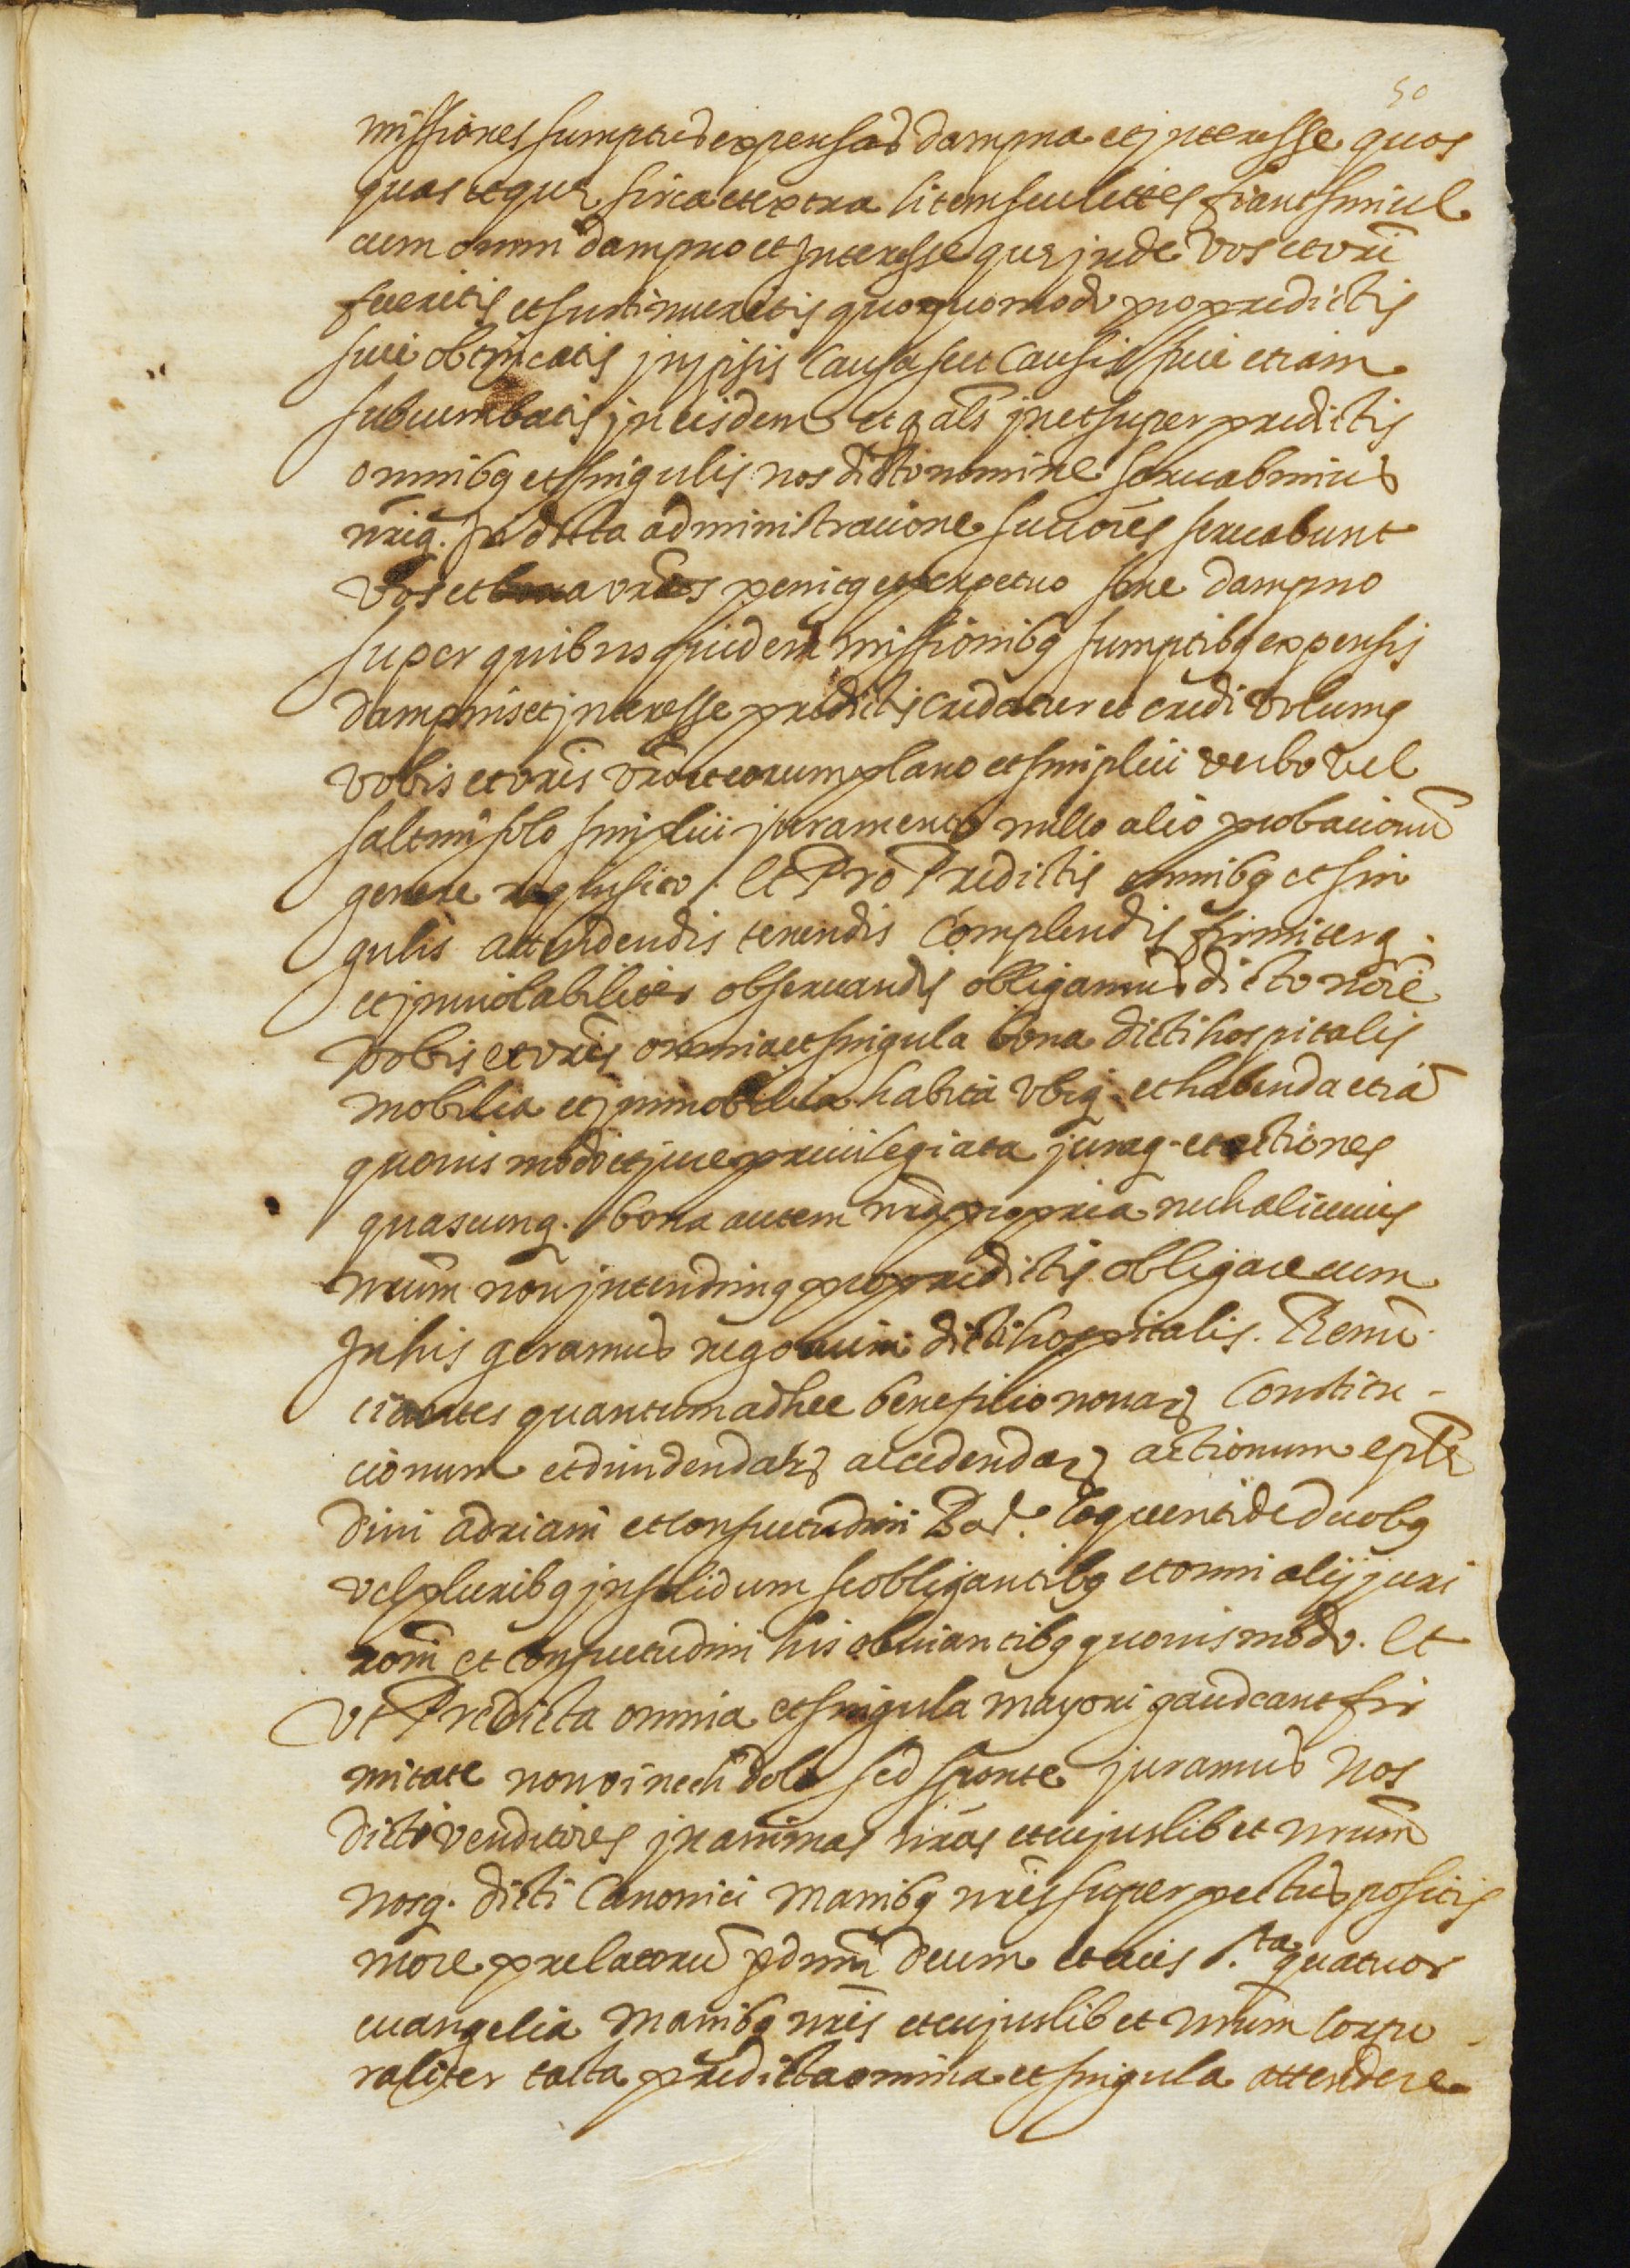 50
missiones sumptus expensas dampna et jnteresse quos
quas et que circa et extra litem seu lites fiant simul
cum omni dampno et Jnteresse que jnde vos et vr̄i
feceritis et sustinueritis quoquomodo pro predictis
siue obtineatis jn ipsis Causa seu Causis siue etiam
subcumbatis jn eisdem et gñals jn et super predictis
omnibq et singulis nos dicto nomine seruabimus
nr̄iq. Jn dicta administracione succōres seruabunt
vos et bona vr̄os penitq et perpetuo sine dampno
super quibus quidem missionibq sumptibq expensis
dampnis et jnteresse predictis credatur et credi volumq
vobis et vr̄is vr̄o et eorum plano et simplici verbo vel
saltim solo simplici juramento nullo alio probacionū
genere requisito. Et Pro Predictis omnibq et sin
gulis attendendis tenendis Complendis firmiterq.
et jnuiolabiliter obseruandis obligamus dicto noīe
vobis et vr̄is omnia et singula bona dicti hospitalis
mobilia et jnmobilia habita vbiq. et habenda etiā
quouis modo et jure priuilegiata juraq. et actiones
quascunq. bona autem nr̄a propria nech alicuius
nr̄um non jntendimq pro predictis obligare cum
Jn his geramus negocium dicti hospitalis. Renū
ciantes quantum ad hec beneficio nouarꝝ Constitu-
cionum et diuidendarꝝ accedendarꝝ actionum eplē
diui adriani et Consuetudini Bar. loquenti de duobq
vel pluribq jn solidum se obligantibq et omni alij juri
ron̄i et consuetudini his obuiantibq quouismodo. Et
vt Predicta omnia et singula mayori gaudeant fir
mitate non vi nech dolo sed sponte juramus Nos
dicti venditores jn animas nr̄as et cujuslibet nr̄um
nosq. dicti Canonici Manibq nr̄is super pectus positis
more prelatorū p dnm̄ deum et eius S.ta quatuor
euangelia Manibq nr̄is et cujuslibet nr̄um Corpo
raliter tacta predicta omnia et singula attendere